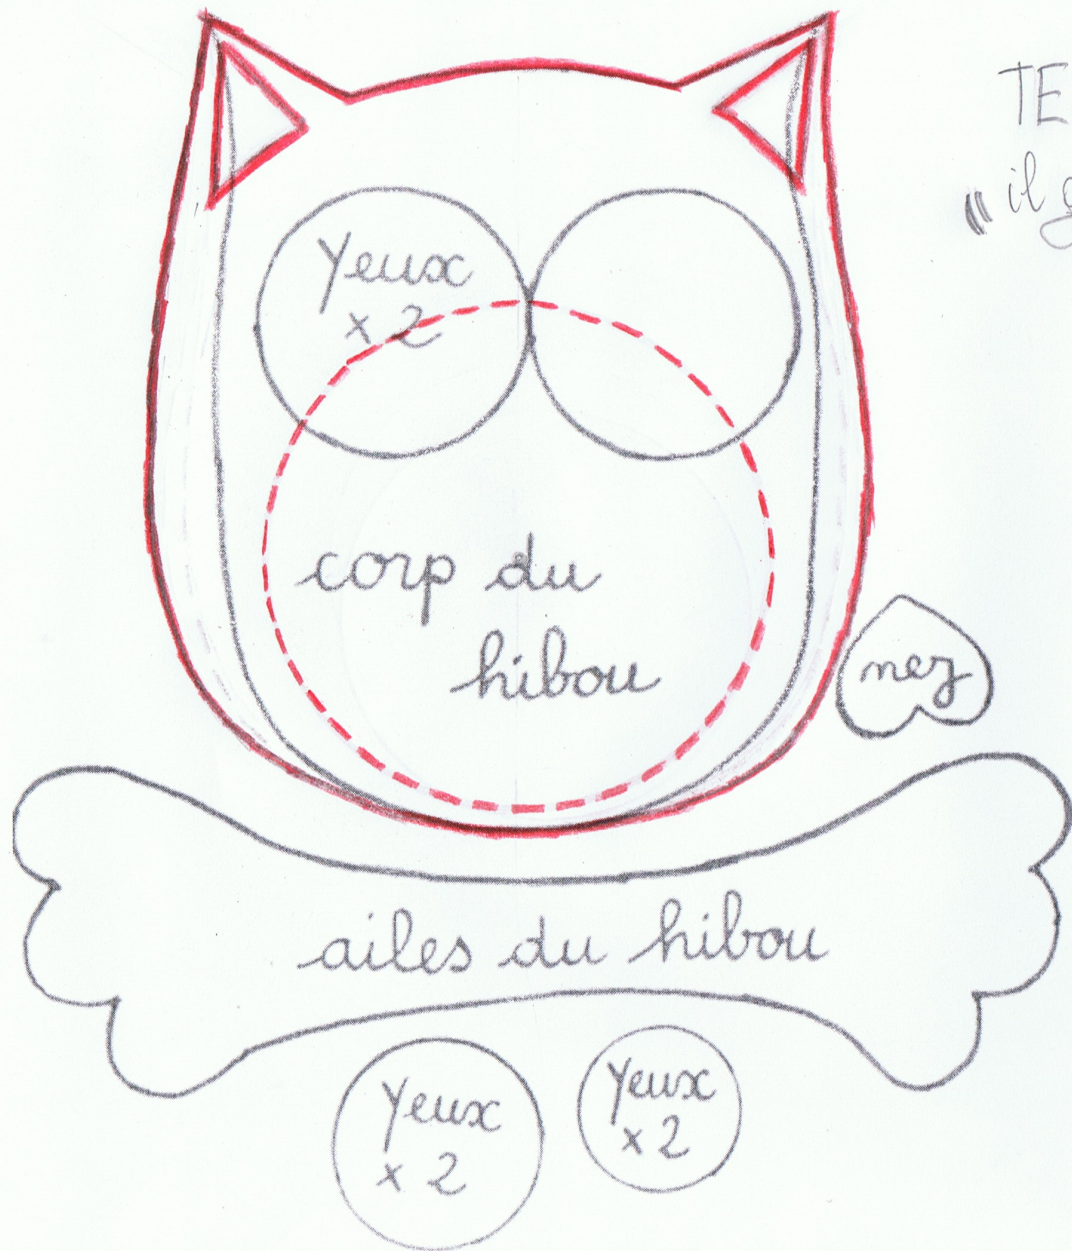 TE
" il g
Yeux
x 2
corp du
hibou
nez
ailes du hibou
Yeux
x 2
Yeux
x 2